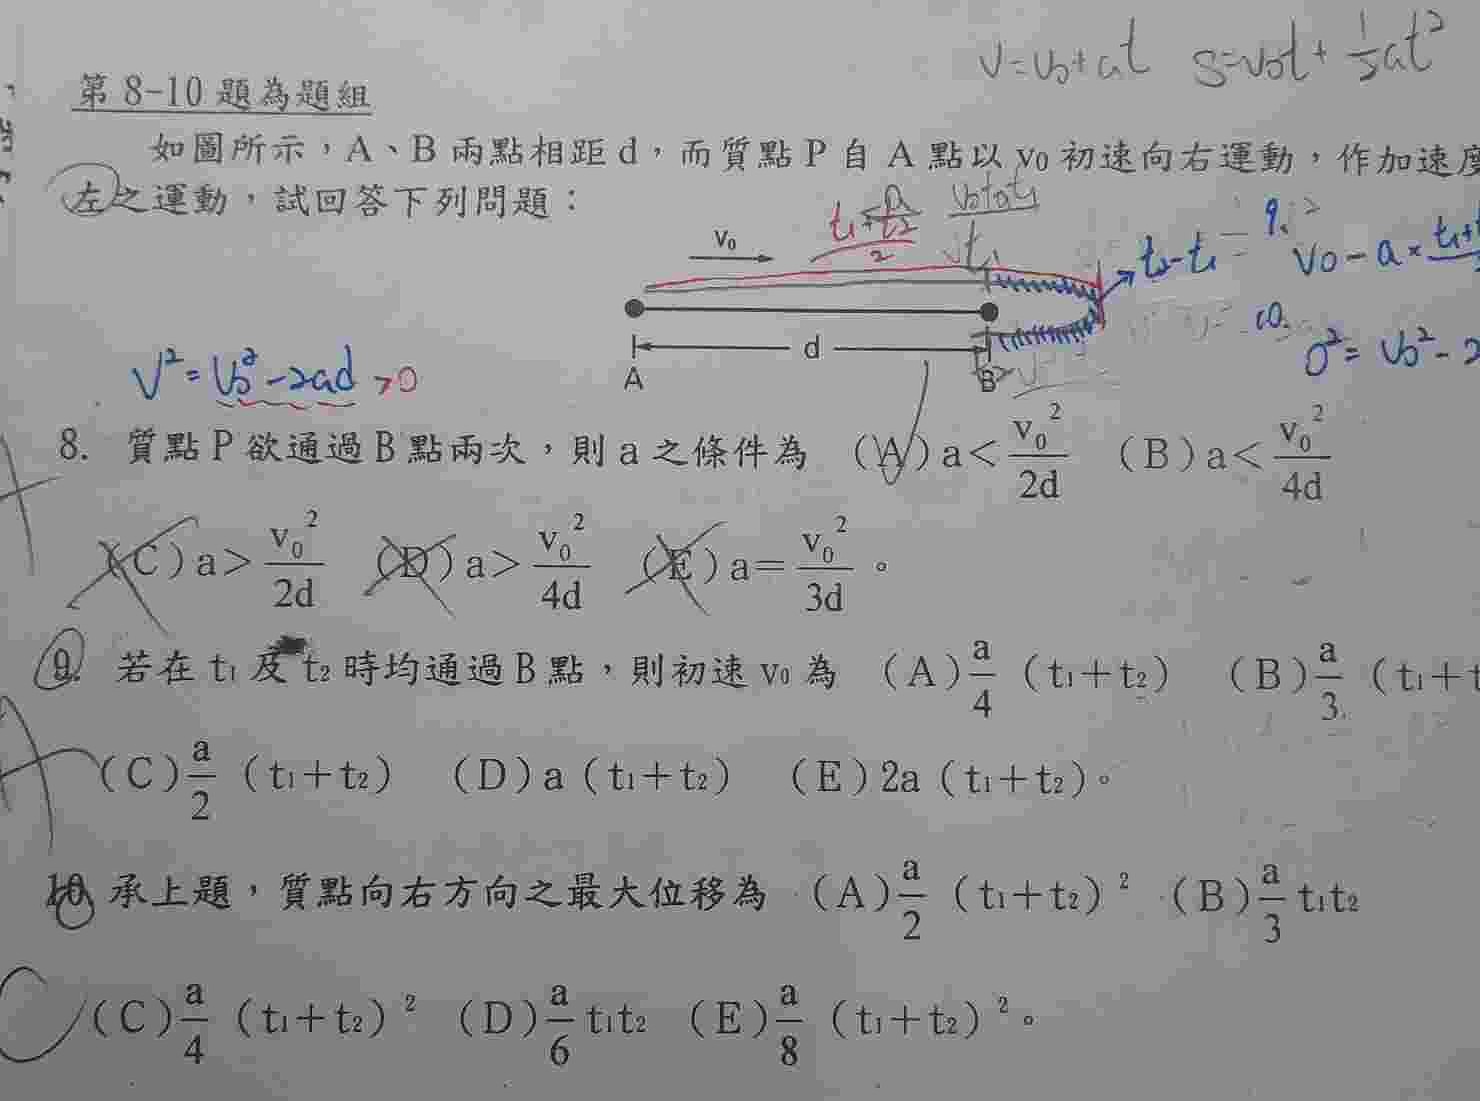 V=V₀+at S=V₀t+½at²
第8-10題為題組
如圖所示，A、B兩點相距d，而質點P自A點以v₀初速向右運動，作加速度
左之運動，試回答下列問題：
v₀
(t₁+t₂)/2
t₂-t₁
V₀-a×
d
A B
V²=V₀²-2ad>0
0²=V₀²-2
8. 質點P欲通過B點兩次，則a之條件為 (A)a<v₀²/2d (B)a<v₀²/4d
(C)a>v₀²/2d (D)a>v₀²/4d (E)a=v₀²/3d。
9. 若在t₁及t₂時均通過B點，則初速v₀為 (A)a/4(t₁+t₂) (B)a/3(t₁+t
(C)a/2(t₁+t₂) (D)a(t₁+t₂) (E)2a(t₁+t₂)。
10. 承上題，質點向右方向之最大位移為 (A)a/2(t₁+t₂)² (B)a/3 t₁t₂
(C)a/4(t₁+t₂)² (D)a/6 t₁t₂ (E)a/8(t₁+t₂)²。